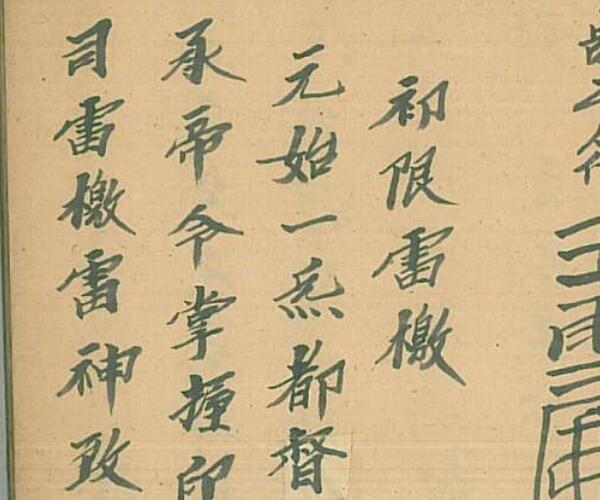 初限雷檄
元始一炁都督
承帝令掌握印
司雷檄雷神改